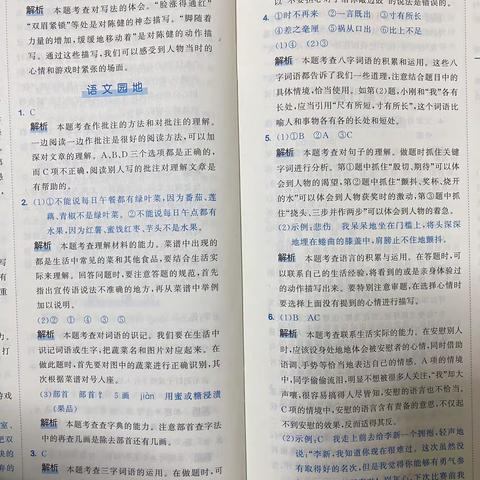 解析 本题考查对写法的体会。“脸涨得通红”
“双眉紧锁”等处是对陈健的神态描写。“脚随着
力量的增加,缓缓地移动着”是对陈健的动作描
写。通过这些描写,我们可以感受到人物当时的
心情和游戏时紧张的场面。
语文园地
1. C
解析 本题考查作批注的方法和对批注的理解。
一边阅读一边作批注是很好的阅读方法,可以加
深对文章的理解。A、B、D三个选项都是正确的,
而C项不正确,阅读别人写的批注对理解文章是
有帮助的。
2. (1)①不能说每日午餐都有绿叶菜,因为番茄、莲
藕、青椒不是绿叶菜。②不能说每日午点都有
水果,因为红薯、蜜饯红枣、芋头不是水果。
解析 本题考查理解材料的能力。菜谱中出现的
都是生活中常见的菜和其他食品,要结合生活实
际来理解。回答问题时,要注意答题的规范,首先
指出宣传语说法不准确的地方,再从菜谱中举例
加以说明。
(2)② ① ④ ③ ⑤
解析 本题考查对词语的识记。我们要在生活中
识记词语或生字,把蔬菜名和图片对应起来。在
做此题时,首先要对图中的蔬菜进行正确识别,其
次根据菜谱对号入座。
(3)部首 部首饣 5画 jiàn 用蜜或糖浸渍
(果品)
解析 本题考查查字典的能力。注意部首查字法
中的再查几画是除去部首还有几画。
3. C
解析 本题考查三字词语的运用。在做题时,可
①时不再来 ②一言既出 ③寸有所长
④差之毫厘 ⑤祸从口出 ⑥比上不足
(1)④ (2)③
解析 本题考查八字词语的积累和运用。这些八
字词语都告诉了我们一些道理,注意结合题目中的
具体情境,恰当使用。如第(2)题,小刚和“我”各有
长处,应当引用“尺有所短,寸有所长”,这个词语比
喻人和事物各有各的长处和短处。
5. (1)①B ②A ③C
解析 本题考查对句子的理解。做题时抓住关键
字词进行分析。第①题中抓住“殷切、期待”可以体
会到人物的渴望,第②题中抓住“颤抖、奖杯、烧开
的水”可以体会到人物获奖时的激动,第③题中抓
住“挠头、三步并作两步”可以体会到人物的着急。
(2)示例:悲伤 我呆呆地坐在门槛上,将头深深
地埋在蜷曲的膝盖中,肩膀止不住地颤抖。
解析 本题考查语言的积累与运用。在答题时,可
以联系自己的生活经验,将看到的或是亲身体验过
的动作描写出来。要特别注意审题,在选择心情时
要选择上面没有提到的心情进行描写。
6. (1)B AC
解析 本题考查联系生活实际的能力。在安慰别人
时,应该设身处地地体会被安慰者的心情,同时借助
语调、手势等恰当地表达自己的情感。A项的情境
中,同学偷偷流泪,明显不想被很多人关注,“我”却大
声嚷,很容易搞得人尽皆知,安慰的语言也不恰当。
C项的情境中,安慰的语言含有责备的意思,不仅起
不到安慰的效果,反而适得其反。
(2)示例:C 我走上前去给李新一个拥抱,轻声地
说:“李新,我知道你现在很难过。这次虽然没
有取得好的名次,但是我觉得你能够有勇气参